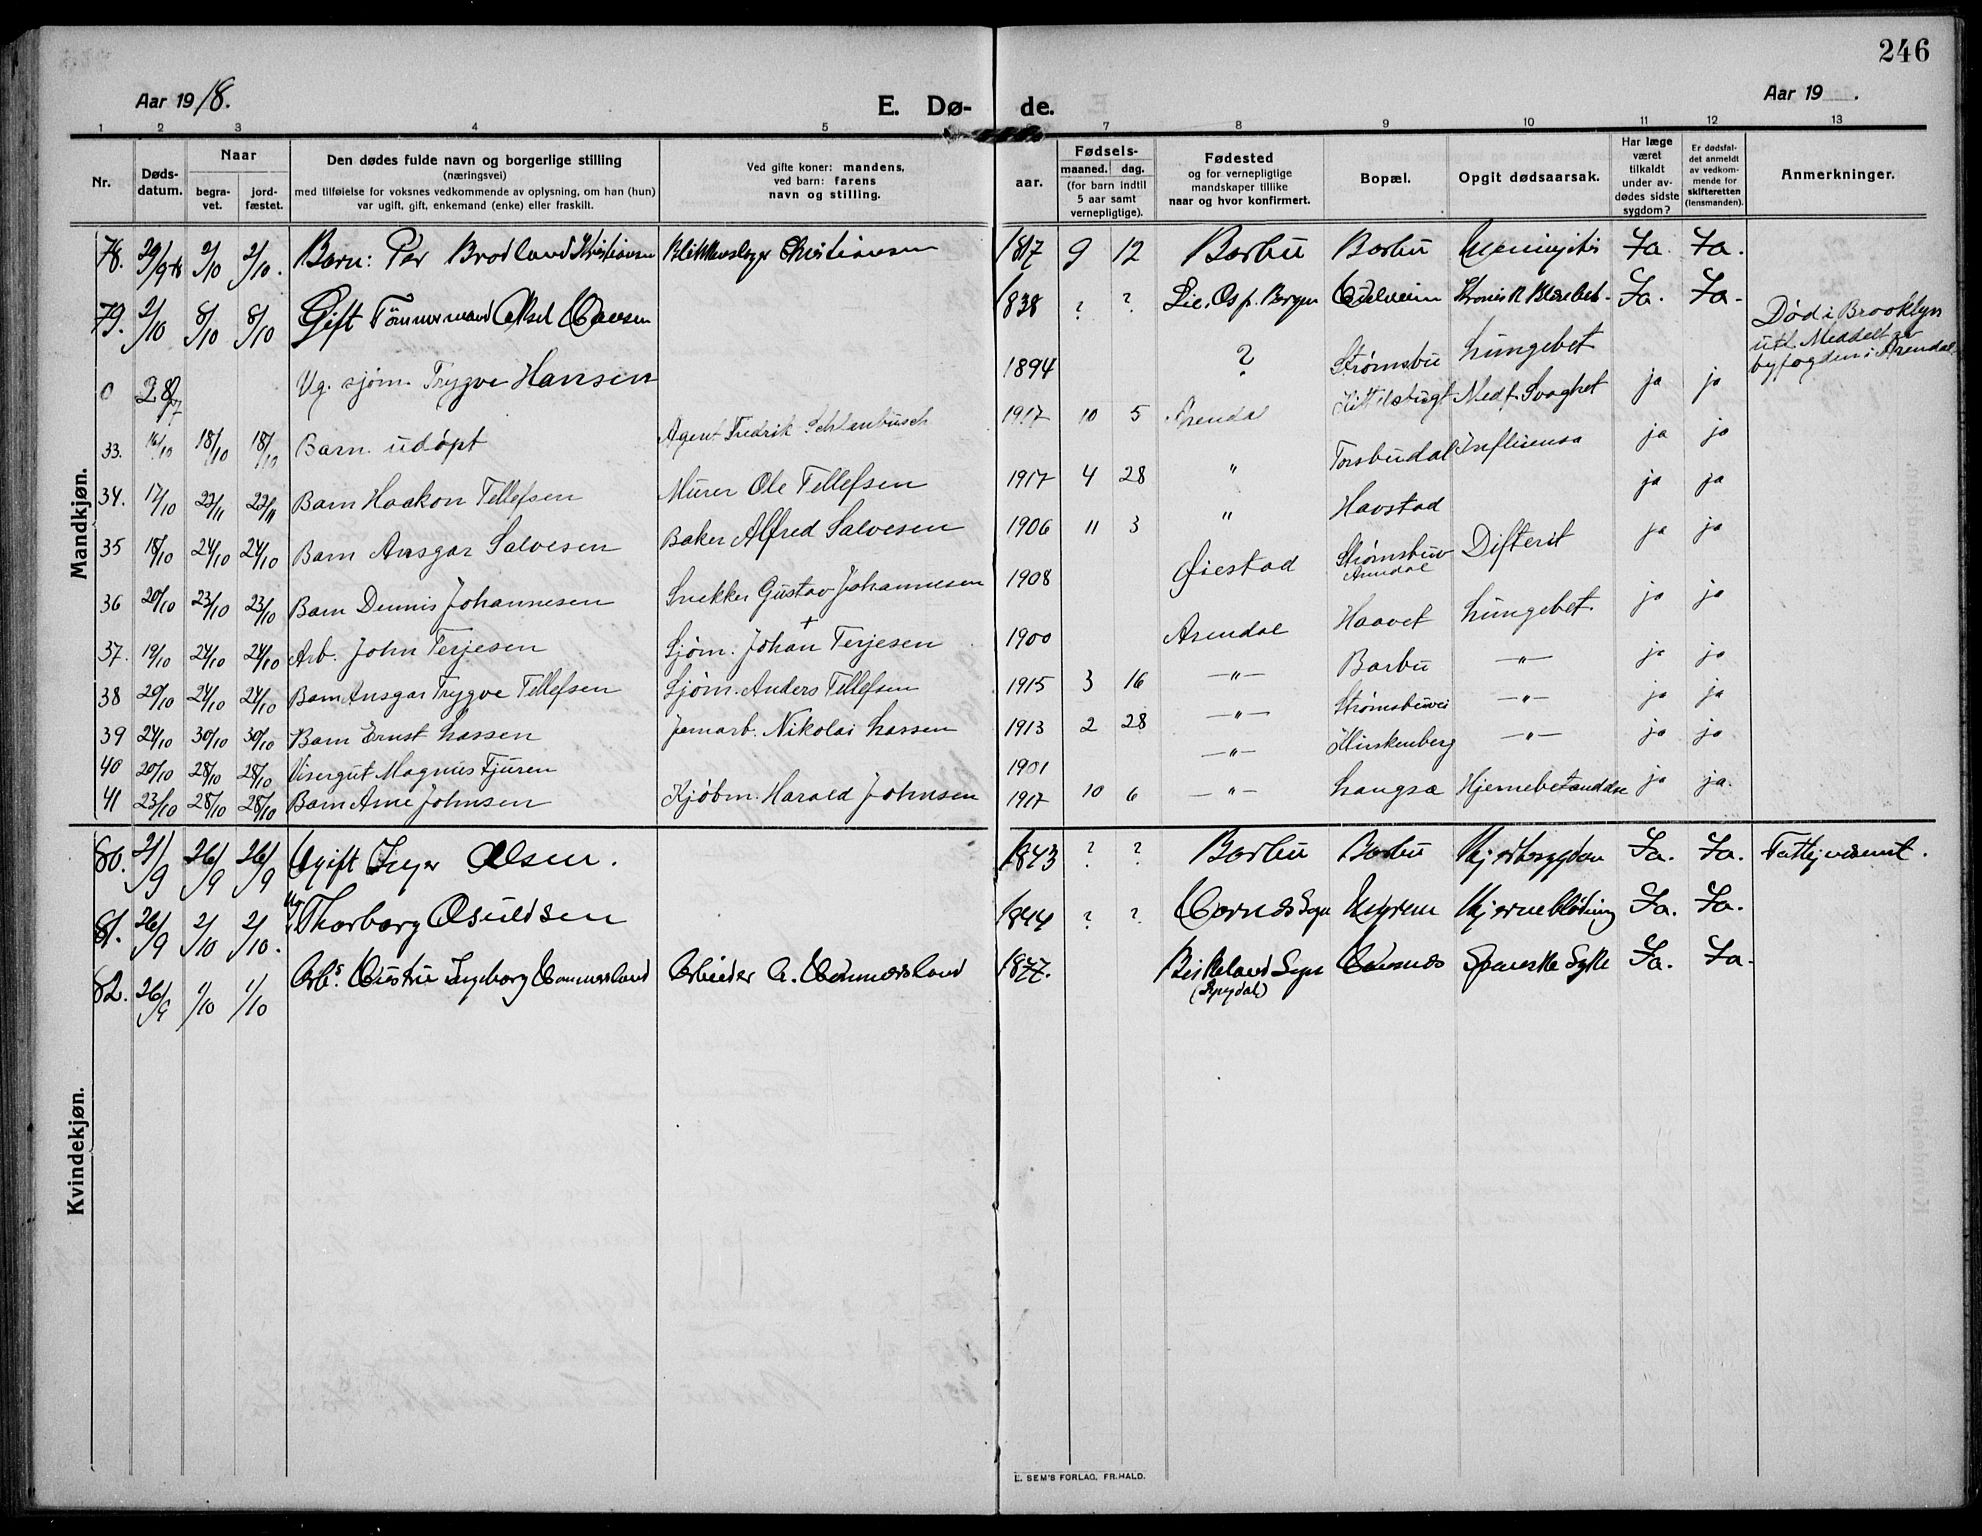 246
Aar 1918.
E. Dø-
de.
Aar 19 .
1 2 3 4 5 7 8 9 10 11 12 13
Nr.
Døds-
datum.
Naar
begra-
vet.
jord-
fæstet.
Den dødes fulde navn og borgerlige stilling
(næringsvei)
med tilføielse for voksnes vedkommende av oplysning, om han (hun)
var ugift, gift, enkemand (enke) eller fraskilt.
Ved gifte koner: mandens,
ved barn: farens
navn og stilling.
aar.
Fødsels-
maaned. dag.
(for barn indtil
5 aar samt
vernepligtige).
Fødested
og for vernepligtige
mandskaper tillike
naar og hvor konfirmert.
Bopæl.
Opgit dødsaarsak.
Har læge
været
tilkaldt
under av-
dødes sidste
sygdom?
Er dødsfal-
det anmeldt
av vedkom-
mende for
skifteretten
(lensmanden).
Anmerkninger.
Mandkjøn.
78. 29/9 18 2/10 2/10. Barn: Per Brodland Kristiansen Blikkenslager Christiansen 1917 9 12 Barbu Barbu Meningitis Ja. Ja.
79. 2/10 8/10 8/10 Gift Tømmermand Aksel 1838 ? ? Ja. Ja.
0 28/7 Ug. sjøm. Trygve Hansen 1894 ? Strømsbu Lungebet
Død i Brooklyn
utl. Meddelt av
byfogden i Arendal.
33. 16/10 18/10 18/10 Barn udøpt Agent Fredrik Schlanbusch 1917 10 5 Arendal Kittelsbugt Medf. Svaghet ja jo
34. 17/10 22/11 22/11 Barn Haakon Tellefsen Murer Ole Tellefsen 1917 4 28 " Torsbudal Influensa ja jo
35 18/10 24/10 24/10 Barn Ansgar Salvesen Baker Alfred Salvesen 1906 11 3 " Havstad ja ja
36 20/10 23/10 23/10 Barn Dennis Johannesen Snekker Gustav Johannesen 1908 Øiestad Strømsbuv Arendal Difterit ja jo
37. 19/10 24/10 24/10 Arb. John Terjesen Sjøm. Johan + Terjesen 1900 Arendal Haavet Lungebet. jo jo
38 20/10 24/10 24/10 Barn Ansgar Trygve Tellefsen Sjøm. Anders Tellefsen 1915 3 16 —"— Barbu —"— ja jo
39 24/10 30/10 30/10 Barn Ernst Lassen Jernarb. Nikolai Lassen 1913 2 28 —"— Strømsbuvei —"— ja ja
40 20/10 28/10 28/10 Visergut Magnus Tjuren 1901 —"— —"— ja jo
41 23/10 28/10 28/10 Barn Arne Johnsen Kjøbm. Harald Johnsen 1917 10 6 —"— Langsæ ja ja.
Kvindekjøn.
80. 21/9 26/9 26/9 Ugift Inger Olsen. 1843 ? ? Barbu Barbu Hjertesygdom Ja. Ja. Fattigvæsenet.
81. 26/9 2/10 2/10. Ug. Thorborg Osuldsen 1844 ? ? Hjerneblødning Ja. Ja.
82. 26/9 1/10 1/10 Arb.s Ingeborg Arbeider 1877. Birkeland Sogn Spanske Syke Ja. Ja.
L. SEM'S FORLAG, FR.HALD.